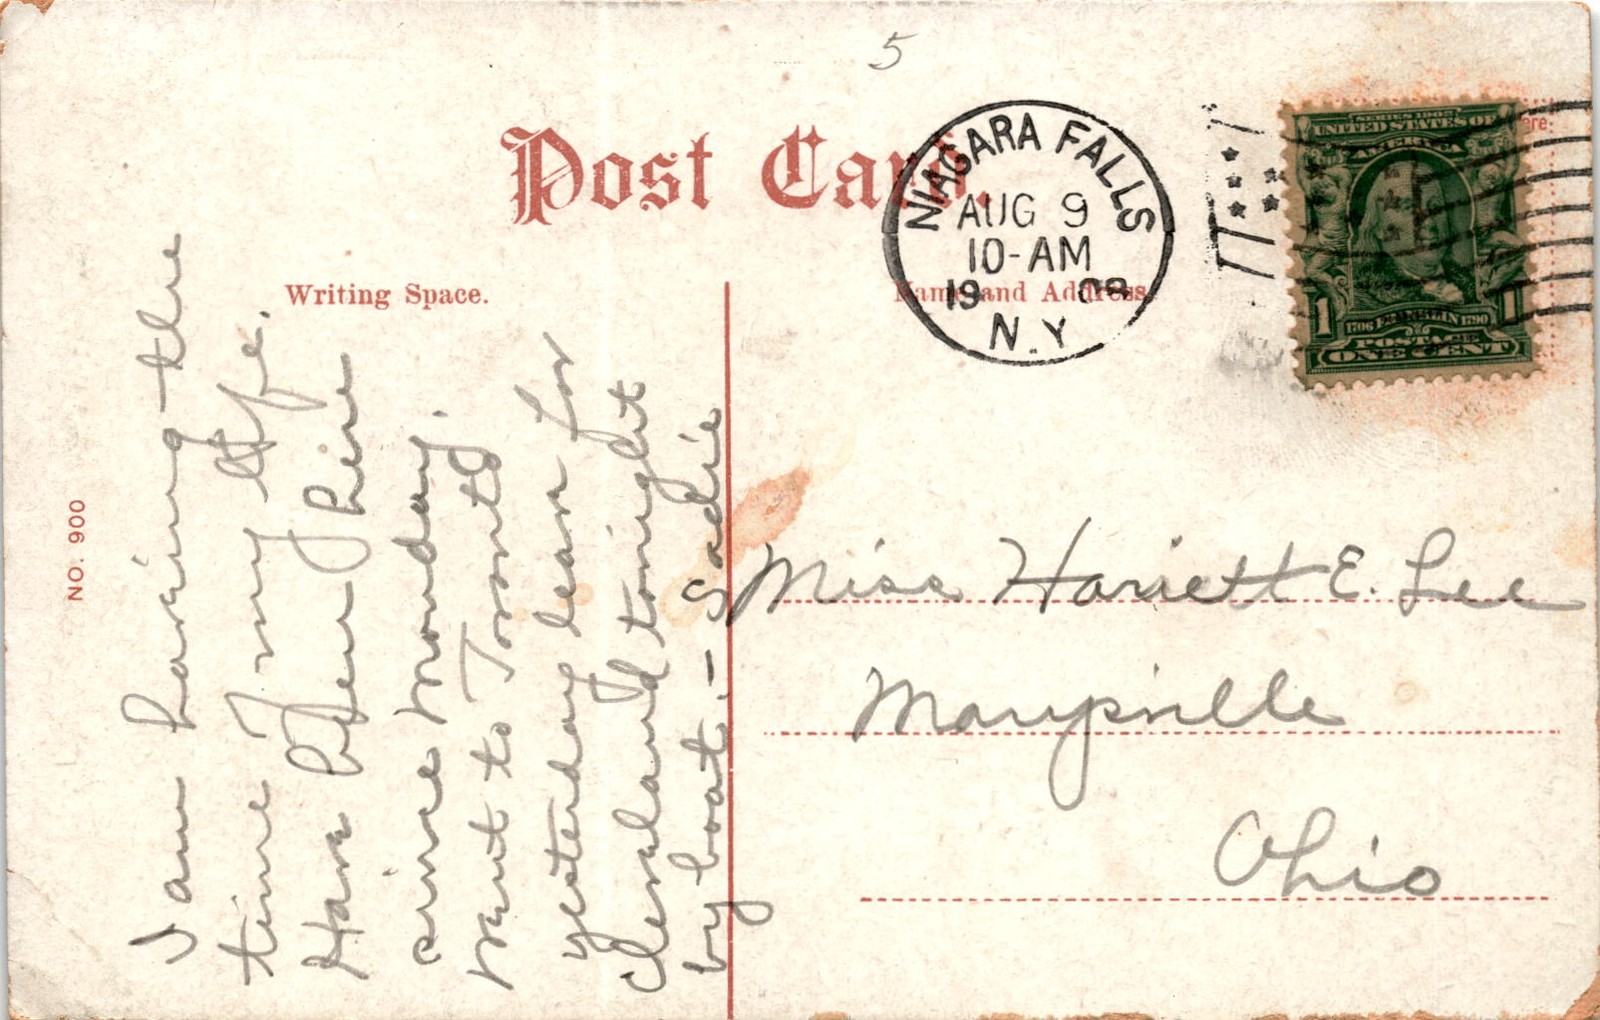 5
Post Card.
NIAGARA FALLS
AUG 9
10-AM
1908
N.Y.
SERIES 1902
UNITED STATES OF
AMERICA
1
1706 FRANKLIN 1790
1
POSTAGE
ONE CENT
Writing Space.
Name and Address
NO. 900
I am having the
time of my life.
Have been here
since Monday.
Went to Toronto
yesterday leave for
Cleveland tonight
by boat. - Sadie
Miss Hariett E. Lee
Marysville
Ohio